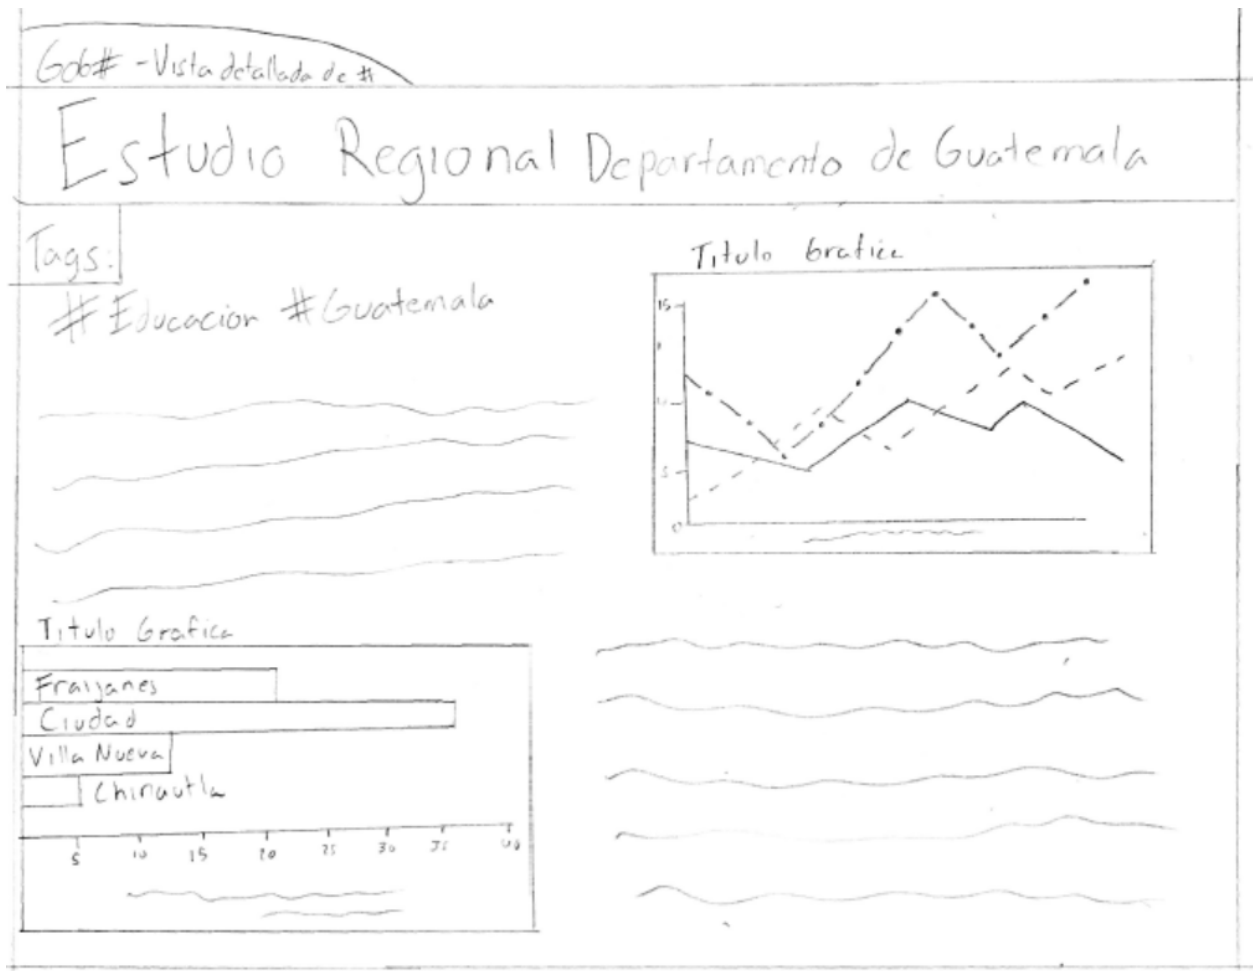 Gob# - Vista detallada de #
Estudio Regional Departamento de Guatemala
Tags:
#Educacion #Guatemala
Titulo Grafica
15
5
0
Titulo Grafica
Fraijanes
Ciudad
Villa Nueva
Chinautla
5 10 15 20 25 30 35 40